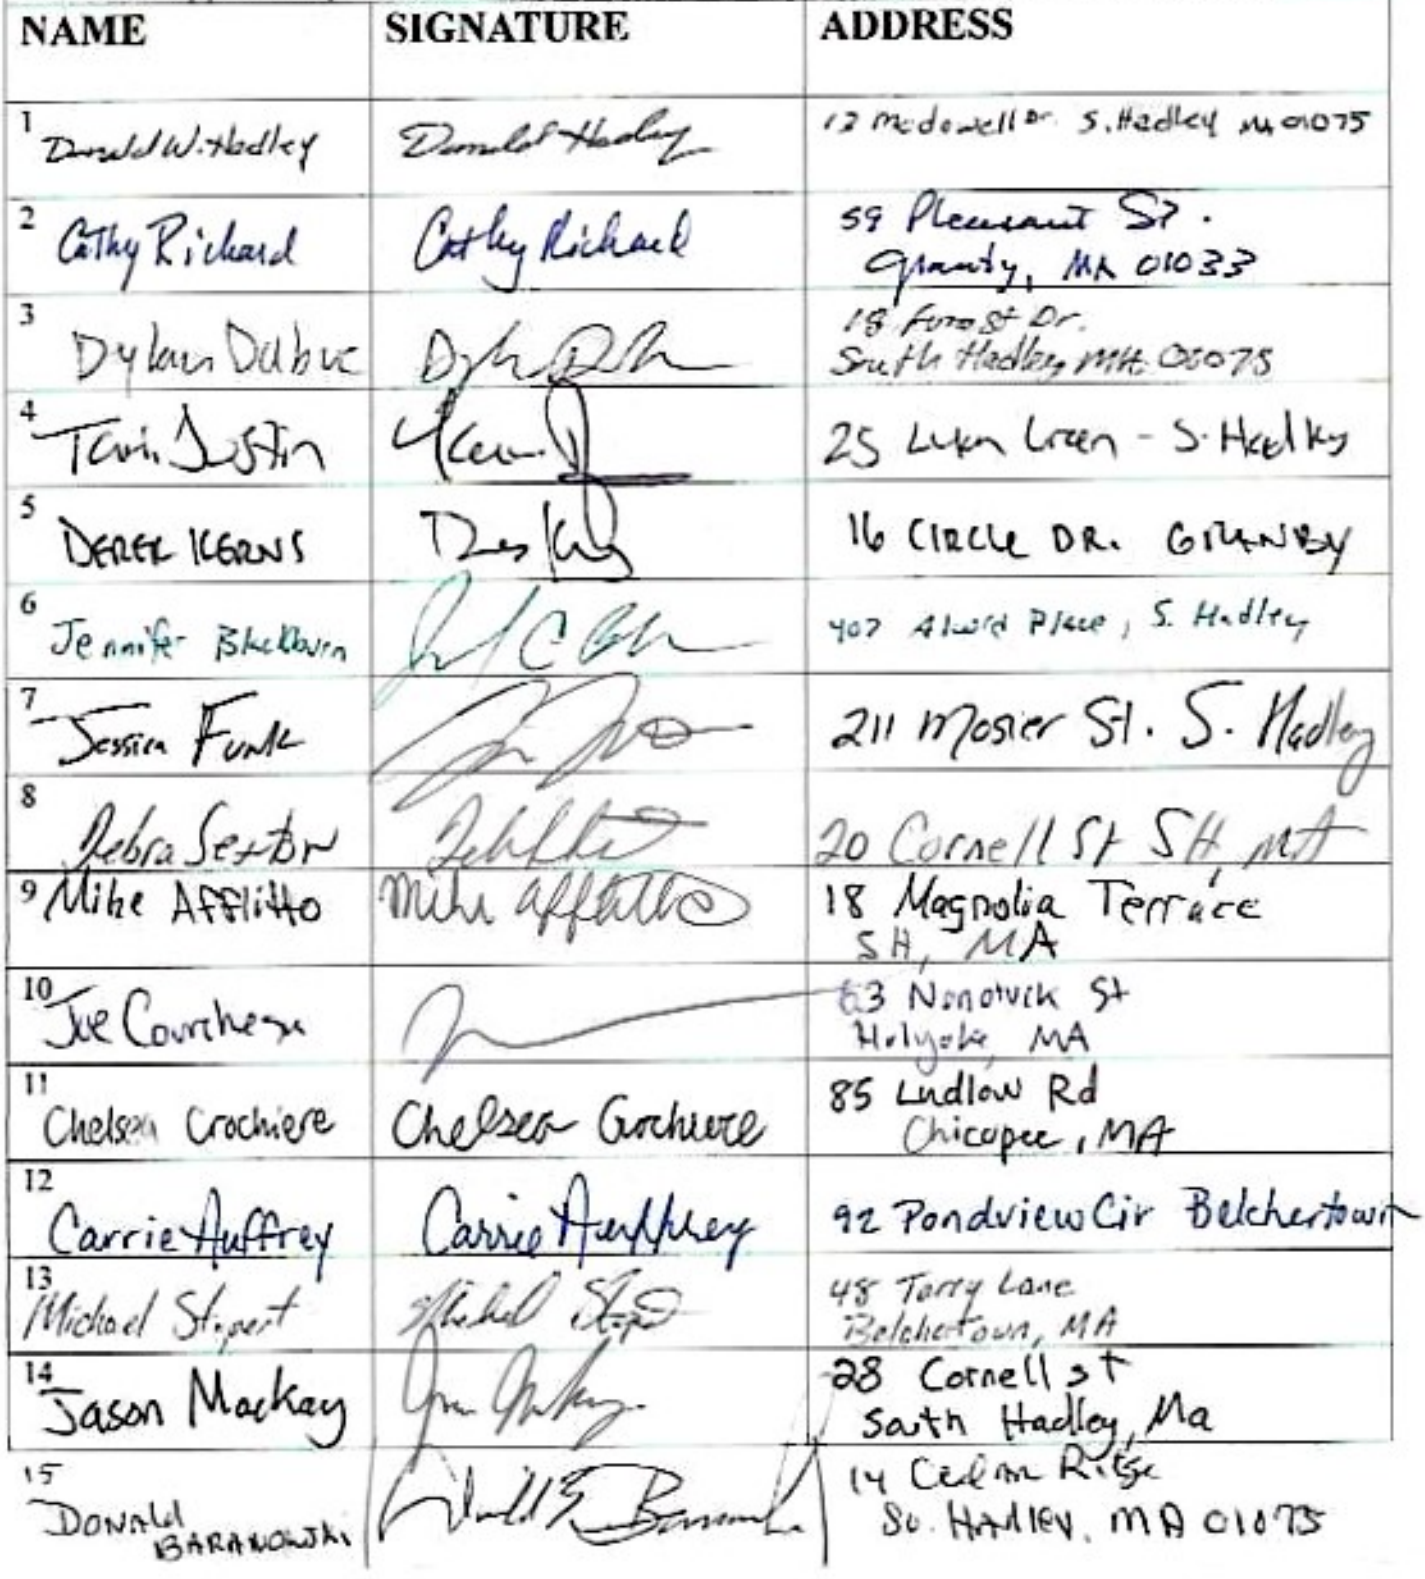 NAME SIGNATURE ADDRESS
1 Donald W. Hadley Donald Hadley 12 Mcdowell Dr. S. Hadley MA 01075
2 Cathy Richard Cathy Richard 59 Pleasant St.
Granby, MA 01033
3 Dylan Dubuc 18 Forest Dr.
South Hadley MA 01075
4 Justin 25 - S. Hadley
5 DEREK KERNS 16 CIRCLE DR. GRANBY
6 Jennifer Blackburn 407 Alvord Place, S. Hadley
7 Jessica Funk 211 Mosier St. S. Hadley
8 Debra Sexton 20 Cornell St SH, MA
9 Mike Afflitto Mike Afflitto 18 Magnolia Terrace
SH, MA
10 Joe Courchesne 63 Nonotuck St
Holyoke, MA
11 Chelsea Crochiere Chelsea Crochiere 85 Ludlow Rd
Chicopee, MA
12 Carrie Auffrey Carrie Auffrey 92 Pondview Cir Belchertown
13 Michael Michael 48 Terry Lane
Belchertown, MA
14 Jason Mackay 28 Cornell st
South Hadley, Ma
15 DONALD 14 Cedar Ridge
BARANOWSKI So. HADLEY, MA 01075